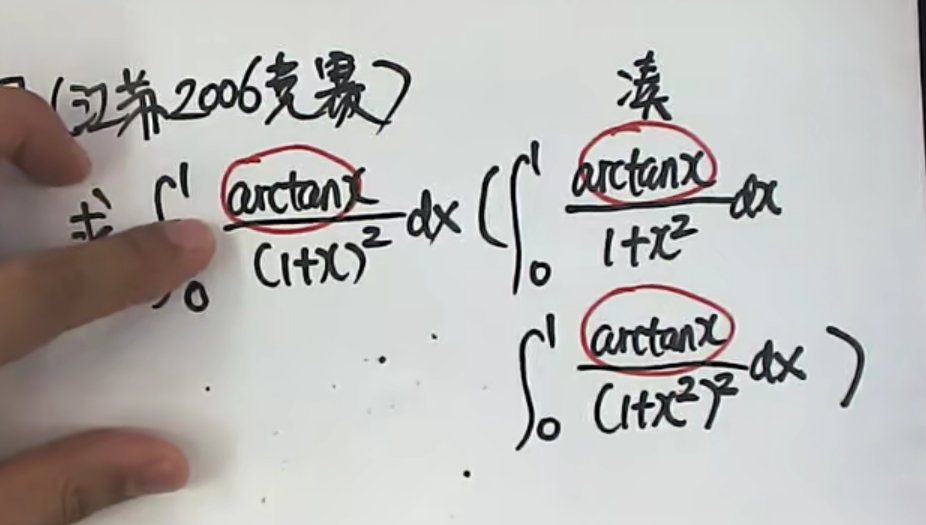 (江苏2006竞赛) 凑
求 ∫₀¹ arctanx/(1+x)² dx (∫₀¹ arctanx/1+x² dx
∫₀¹ arctanx/(1+x²)² dx)